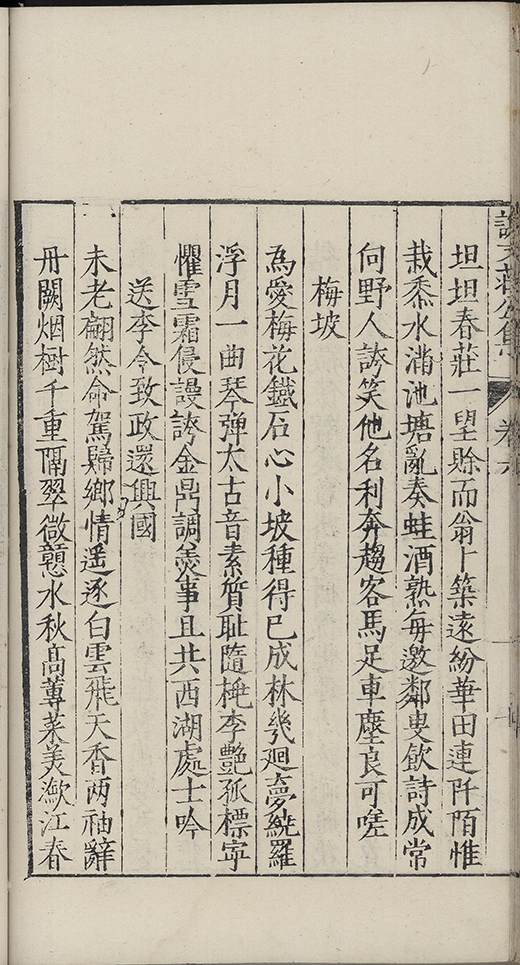 坦坦春莊一望賖而翁卜築遠紛華田連阡陌惟
栽黍水滿池塘亂奏蛙酒熟每邀鄰叟飲詩成常
向野人誇笑他名利奔趨客馬足車塵良可嗟
梅坡
為愛梅花鐵石心小坡種得已成林幾廻夢繞羅
浮月一曲琴弹太古音素質耻隨桃李艷孤標寜
懼雪霜侵謾誇金鼎調羹事且共西湖處士吟
送李令致政還興國
未老翩然命駕歸鄉情遥逐白雲飛天香两袖辭
丹闕烟樹千重隔翠微戇水秋髙蓴菜美潊江春